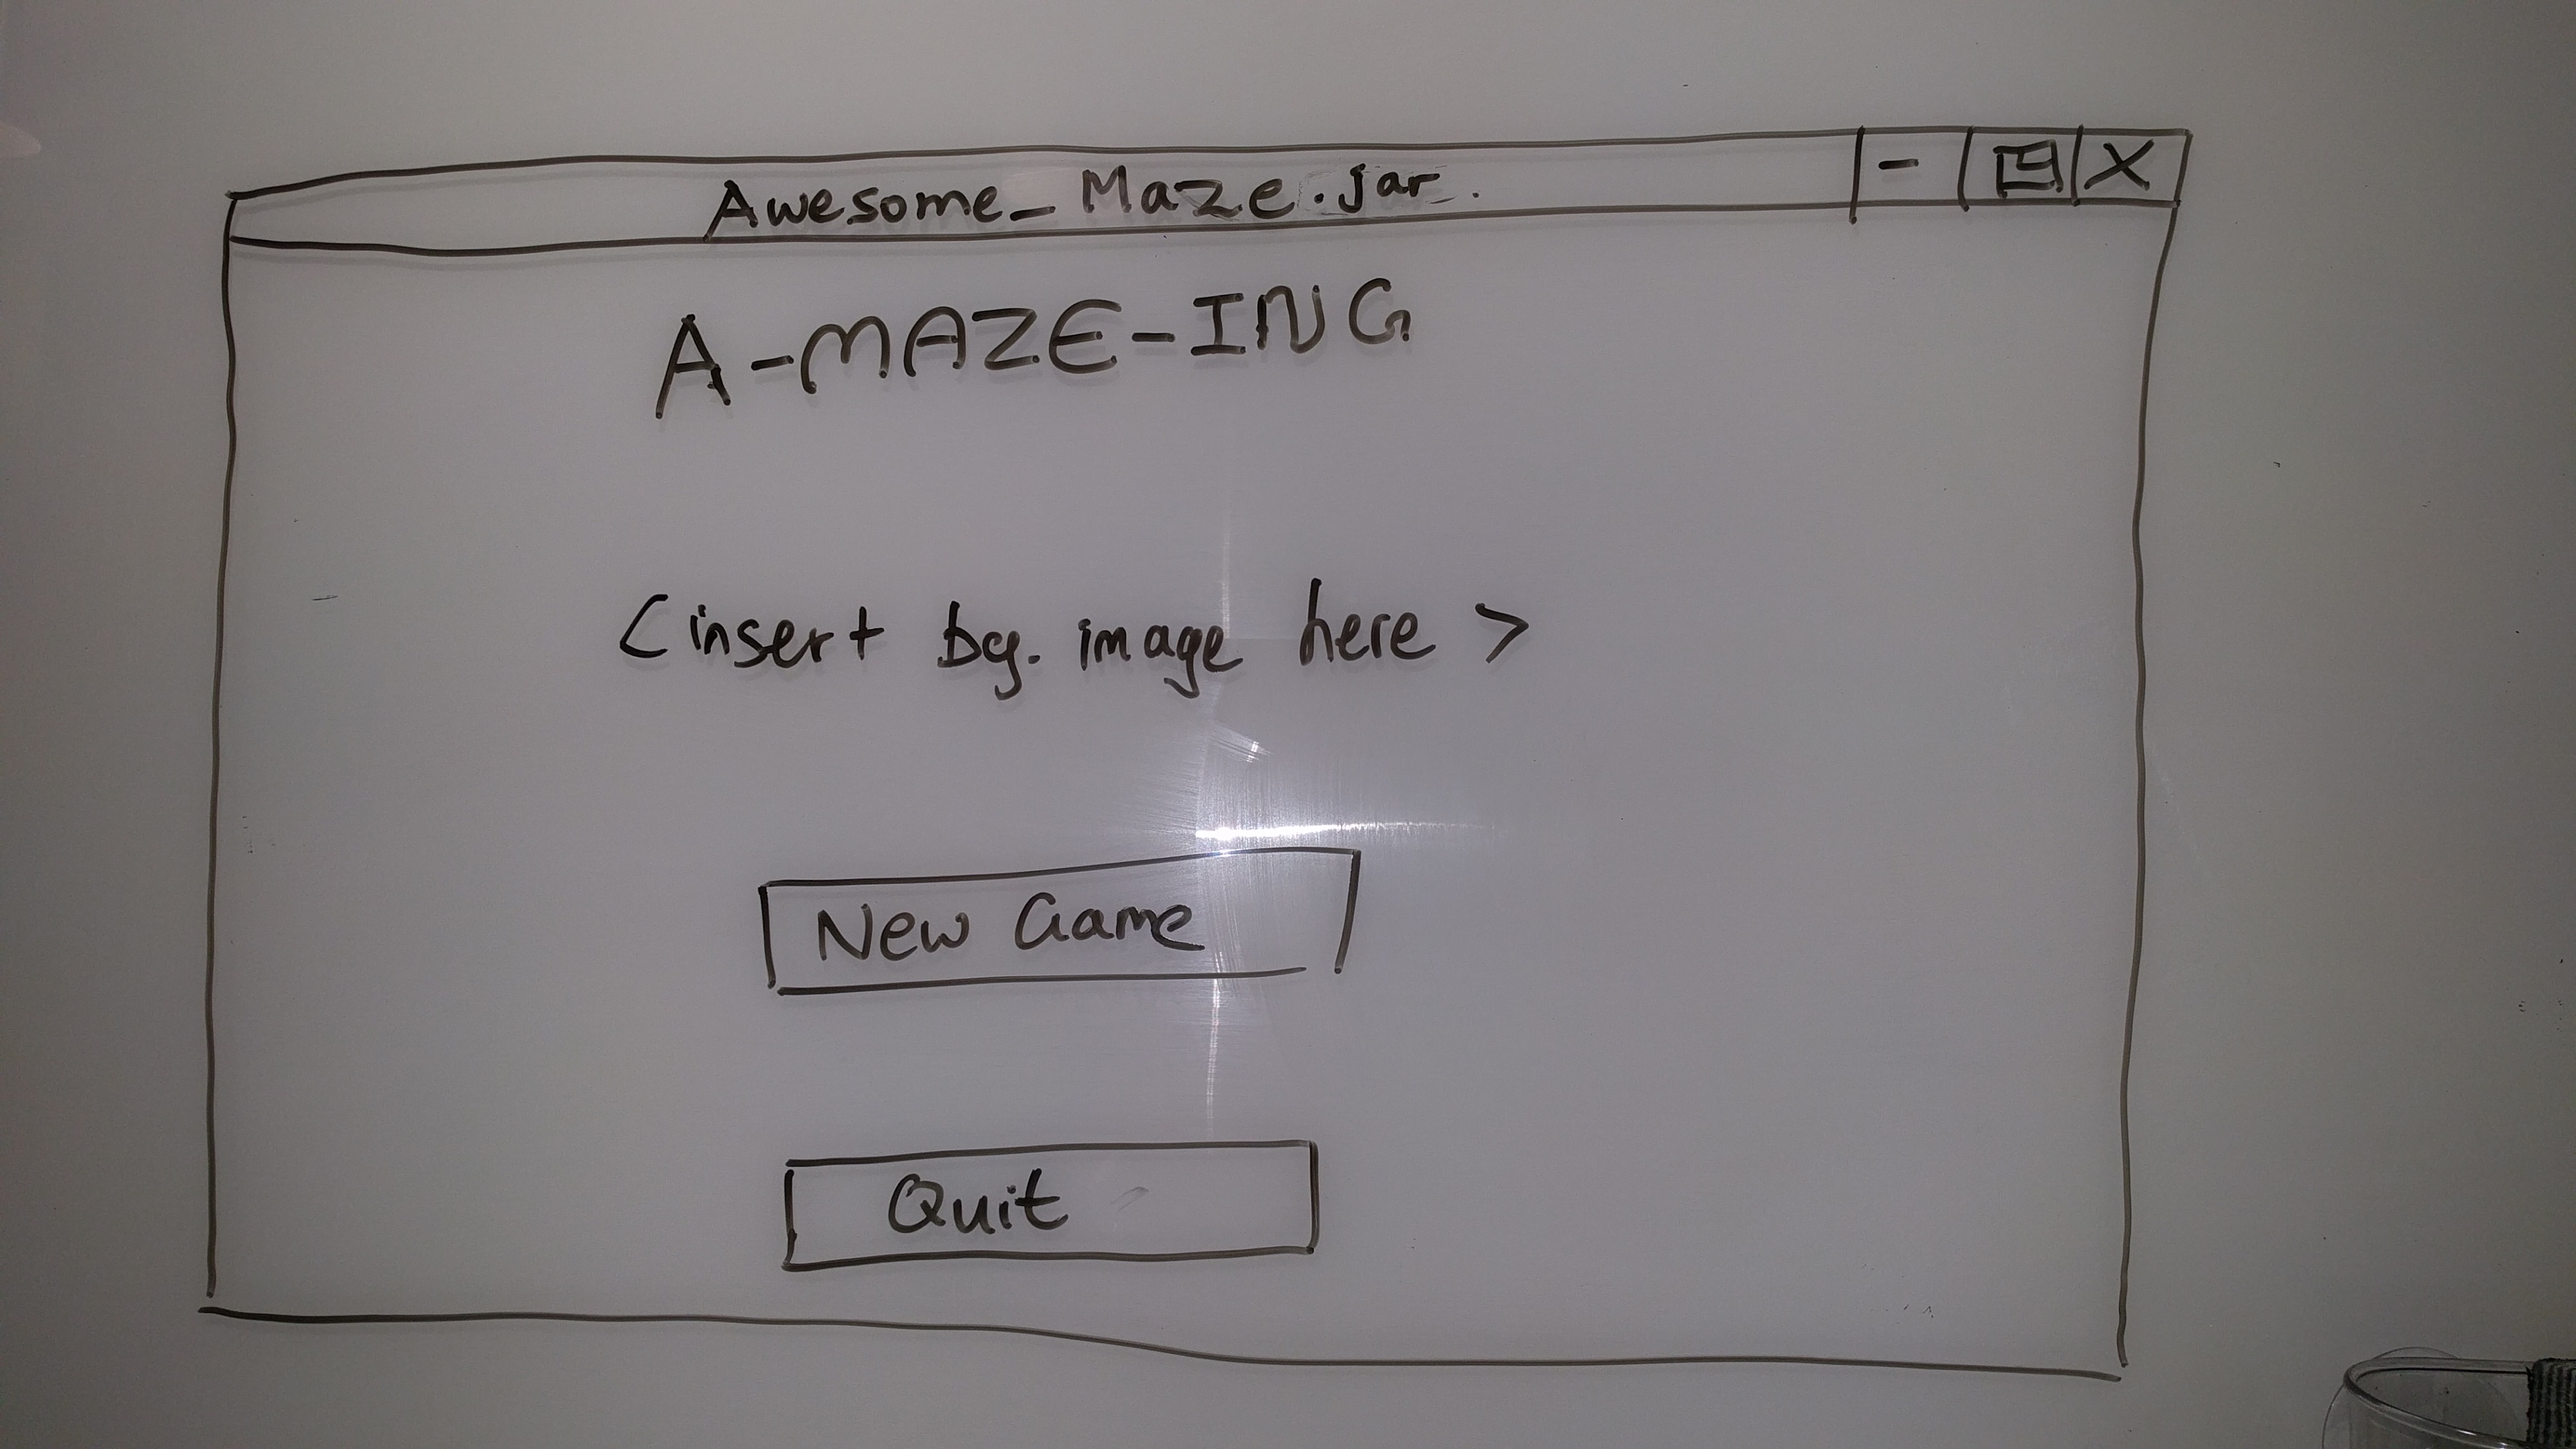 Awesome_Maze.jar.
- X
A-MAZE-ING
<insert bg. image here>
New Game
Quit